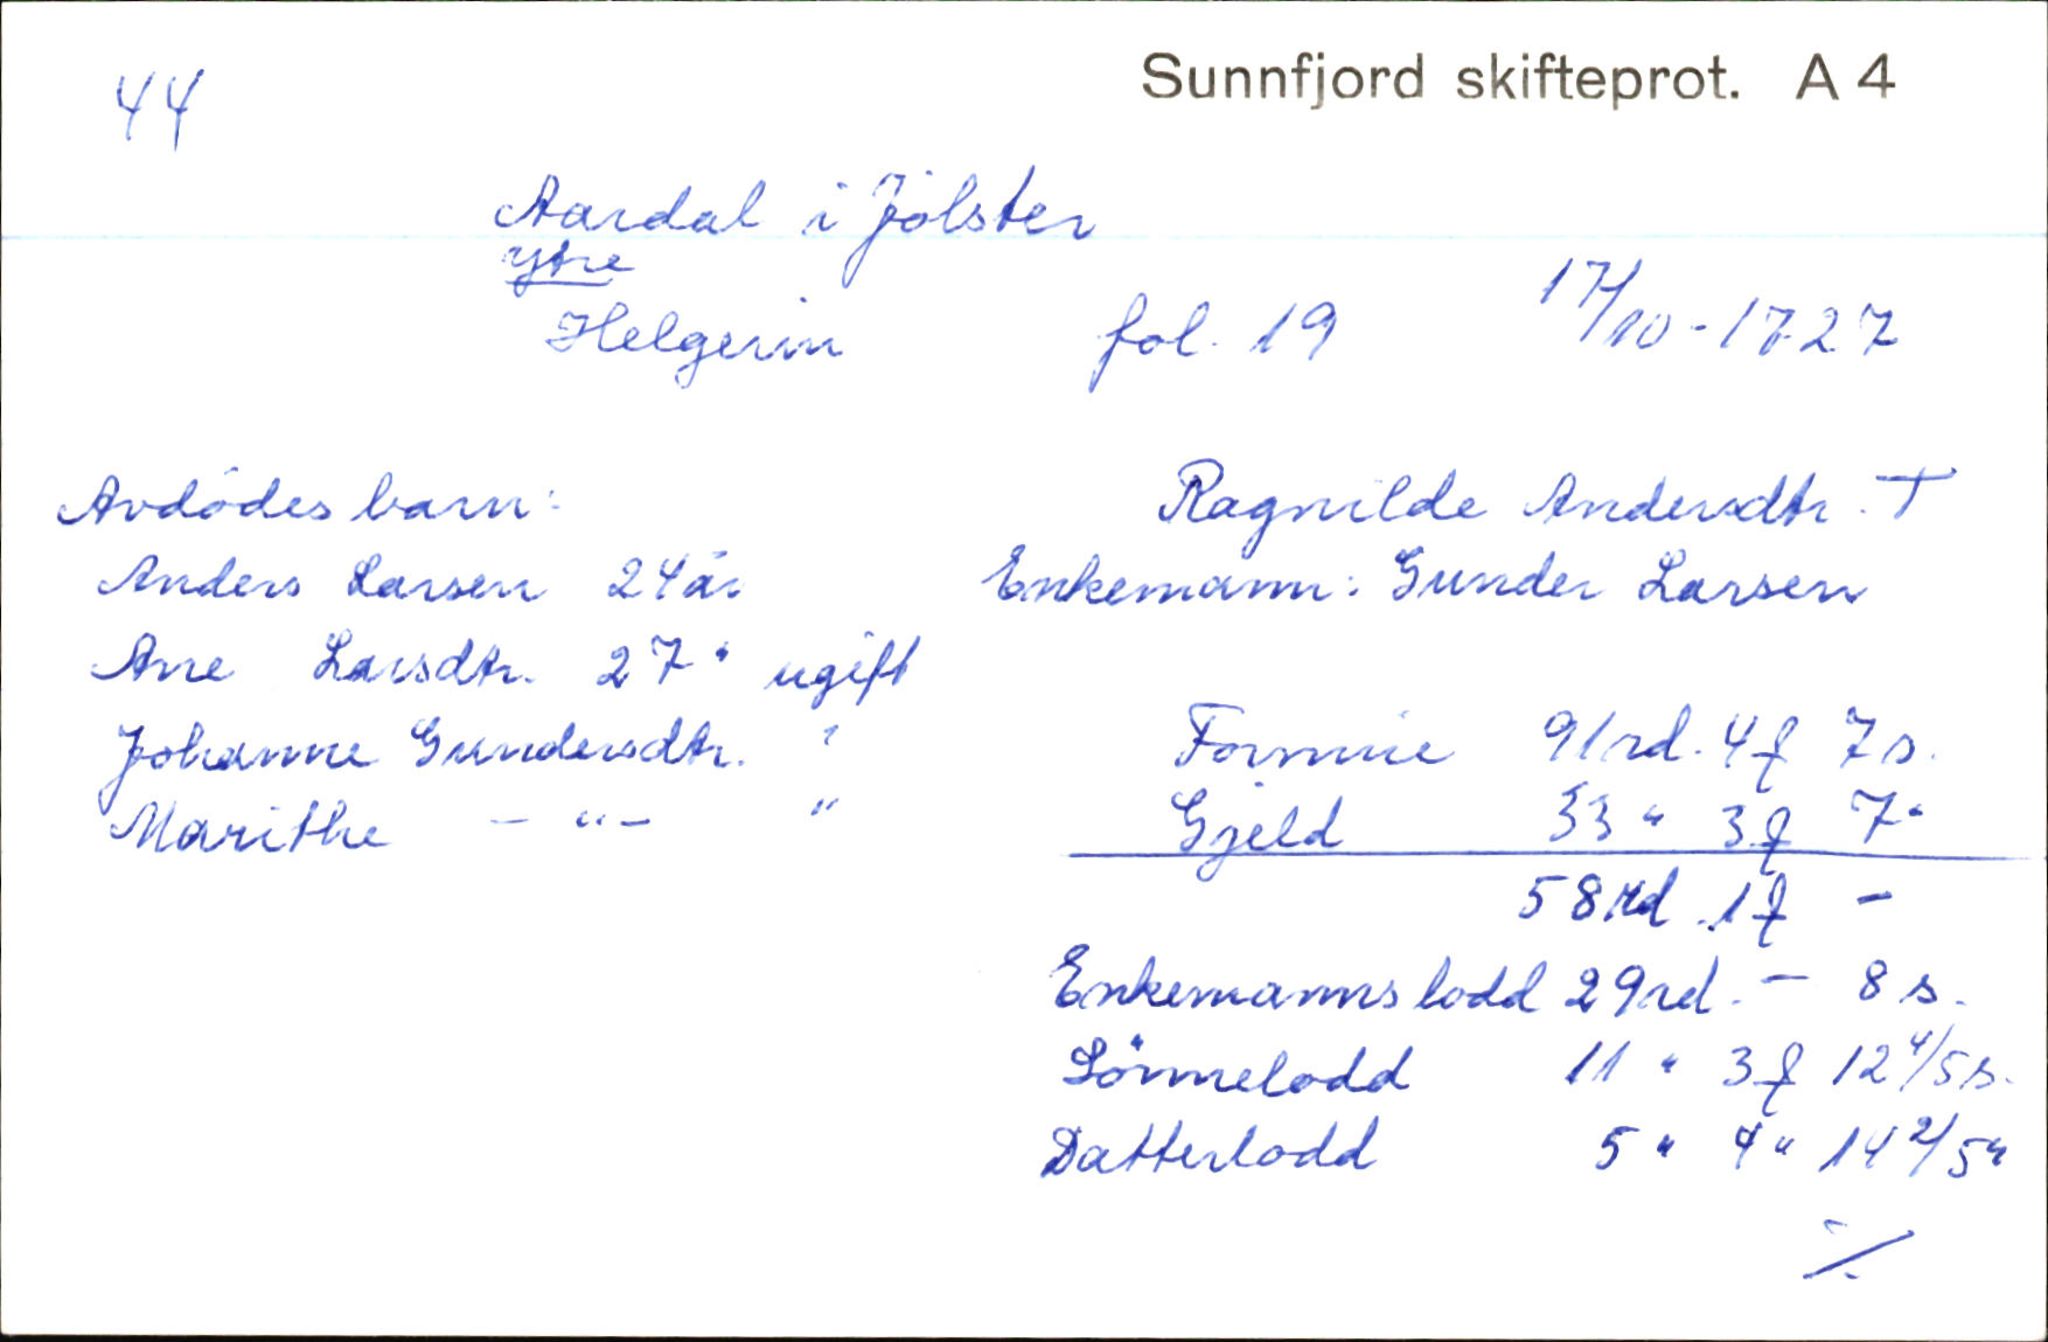 44
Sunnfjord skifteprot. A 4
Aardal i Jölster
Ytre
Helgerin fol. 19 17/10-1727
Avdødes barn:
Anders Larsen 24 år
Ane Larsdtr. 27 " ugift
Johanne Gundersdtr. "
Marithe - " - "
Ragnilde Andersdtr. +
Enkemann: Gunder Larsen
Formue 91 rd. 4 f 7 s.
Gjeld 33 " 3 f 7 "
58 rd. 1 f -
Enkemanns lodd 29 rd. - 8 s.
Sönnelodd 11 " 3 f 12 4/5 s.
Datterlodd 5 " 4 " 14 2/5 "
./.